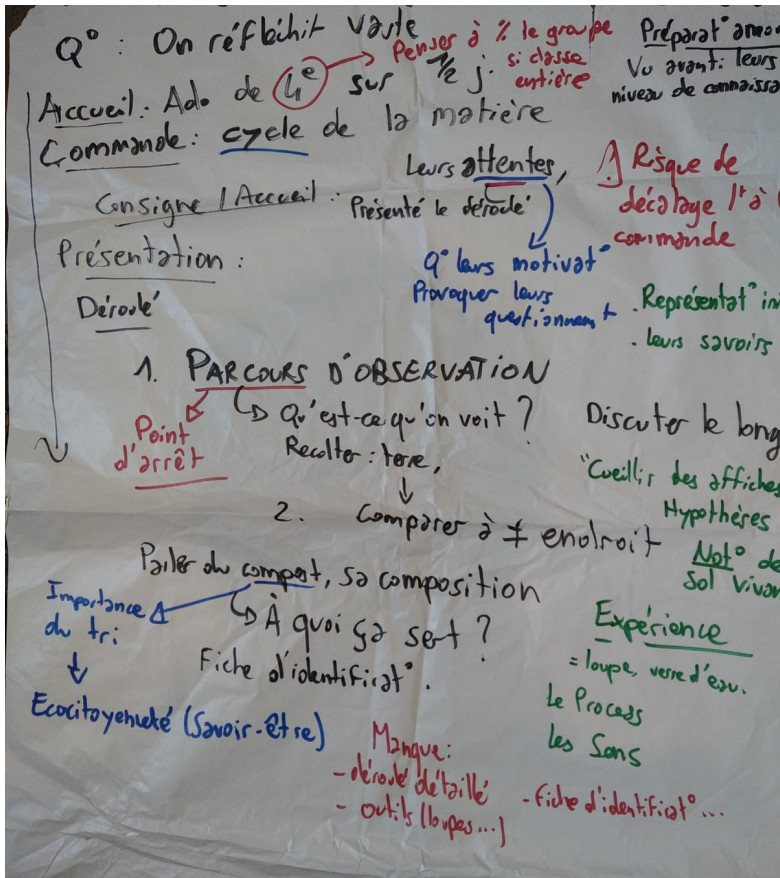 Q° : On réfléchit vaste
Penser à % le groupe
si classe
entière
Préparat°
Vu avant : leurs
niveau de
Accueil : Ado de 4e sur 1/2 j.
Commande : cycle de la matière
Leurs attentes,
Consigne / Accueil :
Présenté le déroulé
Risque de
décalage à
commande
Présentation :
Q° leurs motivat°
Provoquer leurs
questionnemt
. Représentat°
. leurs savoirs
Déroulé
1. PARCOURS D'OBSERVATION
Qu'est-ce qu'on voit ?
Récolter : terre,
Point
d'arrêt
Discuter le long
"Cueillir des affiches
Hypothères
2. Comparer à ≠ endroit
Not° de
Sol
Parler du compost, sa composition
Importance
du tri
À quoi ça sert ?
Fiche d'identificat°.
Ecocitoyenneté (Savoir-être)
Expérience
= loupe, verre d'eau.
Le Process
les Sens
Manque :
- déroulé détaillé
- outils (loupes...)
- fiche d'identificat° ...